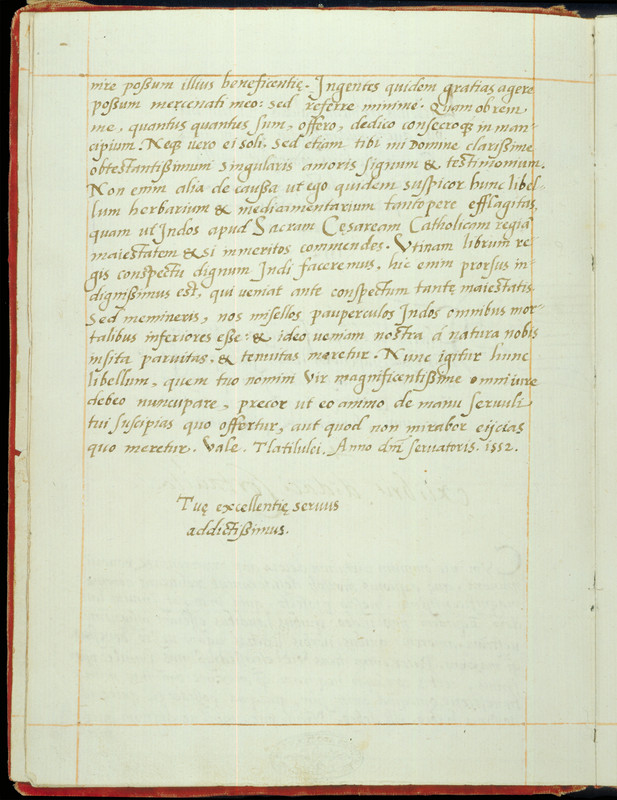 nire poßum illius beneficentię. Ingentes quidem gratias agere
poßum mecœnati meo: sed referre minime. Quam obrem
me, quantus quantus sum, offero, dedico consecroq; in man-
cipium. Neq; vero ei soli. Sed etiam tibi mi Domine clarißime
obtestantißimum singularis amoris signum & testimonium.
Non enim alia de caußa ut ego quidem suspicor hunc libel-
lum herbarium & medicamentarium tanto pere efflagitas,
quam ut Indos apud Sacram Cęsaream Catholicam regiā
maiestatem & si immeritos commendes. Utinam librum re
gis conspectu dignum Indi faceremus, hic enim prorsus in-
dignißimus est, qui veniat ante conspectum tantę maiestatis.
Sed memineris, nos misellos pauperculos Indos omnibus mor-
talibus inferiores eße: & ideo veniam nostra á natura nobis
insita paruitas, & tenuitas meretur. Nunc igitur hunc
libellum, quem tuo nomini vir magnificentißime omni iure
debeo nuncupare, precor ut eo animo de manu seruuli
tui suscipias quo offertur, aut quod non mirabor eijcias
quo meretur. Vale. Tlatilulci. Anno dn̄i seruatoris. 1552.
Tuę excellentię seruus
addictißimus.